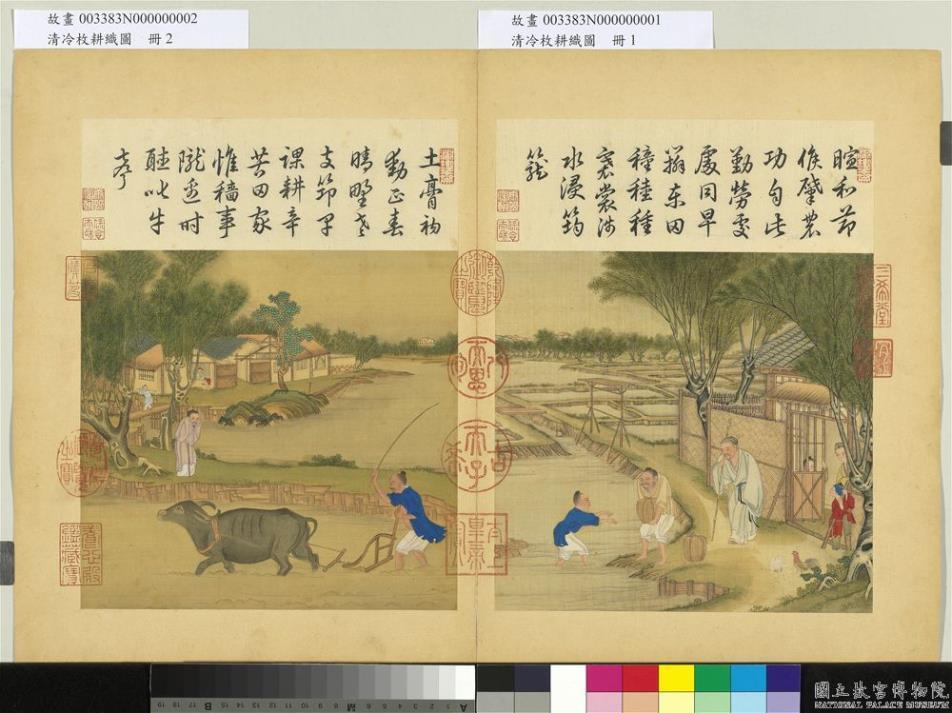 故畫 003383N000000002
清冷枚耕織圖　冊 2
故畫 003383N000000001
清冷枚耕織圖　冊 1
暄和節
候肇農
功自此
勤勞處
處同早
辦東田
穜稑種
褰裳涉
水浸筠
籠
土膏初
動正春
晴野老
支筇早
課耕辛
苦田家
惟穡事
隴邊時
聽叱牛
聲
宜子孫
國立故宮博物院
NATIONAL PALACE MUSEUM